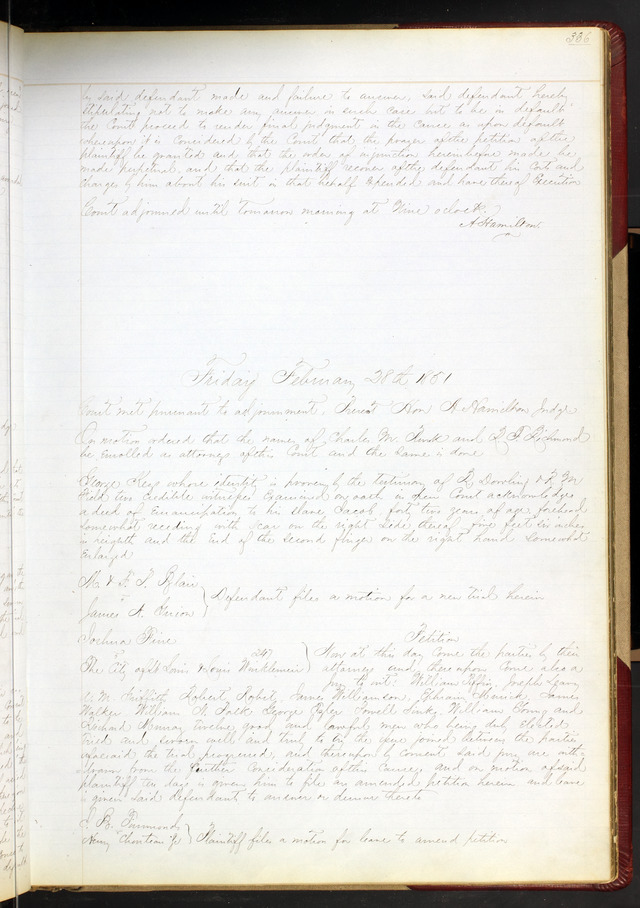 336
by said defendant made and failure to answer, said defendant hereby
stipulating not to make any answer in such case but to be in default
the Court proceed to render final judgment in the cause as upon default
whereupon it is Considered by the Court that the prayer of the petition of the
plaintiff be granted and that the order of injunction hereinbefore made be
made perpetual and that the plaintiff recover of the defendant his Costs and
charges by him about his suit in that behalf expended and have thereof Execution
Court adjourned until tomorrow morning at Nine oclock.
A Hamilton
Friday February 28th 1851
Court met pursuant to adjournment, Present Hon A Hamilton Judge
On motion ordered that the name of Charles M. and Richmond
be Enrolled as attorneys of this Court and the same is done
George whose identity is proven by the testimony of Dowling &
Field two Credible witnesses Examined on oath in open Court acknowledges
a deed of Emancipation to his slave Jacob forty two years of age forehead
somewhat receding with scar on the right side thereof five feet six inches
in height and the End of the second finger on the right hand Somewhat
Enlarged
M. & F. Blair
James A.
Defendant files a motion for a new trial herein
Joshua
Petition
The City of St Louis & Louis
247
Now at this day come the parties by their
attorneys and thereupon come also a
jury to wit: William Joseph
Griffith Robert James Williamson, James
Walker William George William and
Richard Murray twelve good and lawful men who being duly elected
tried and sworn well and truly to try the issue joined between the parties
aforesaid the trial progressed, and thereupon by consent said jury are with-
drawn from the further consideration of this cause, and on motion of said
plaintiff ten days is given him to file an amended petition herein and leave
is given said defendant to answer or demur thereto
Henry Chouteau Jr
Plaintiff files a motion for leave to amend petition